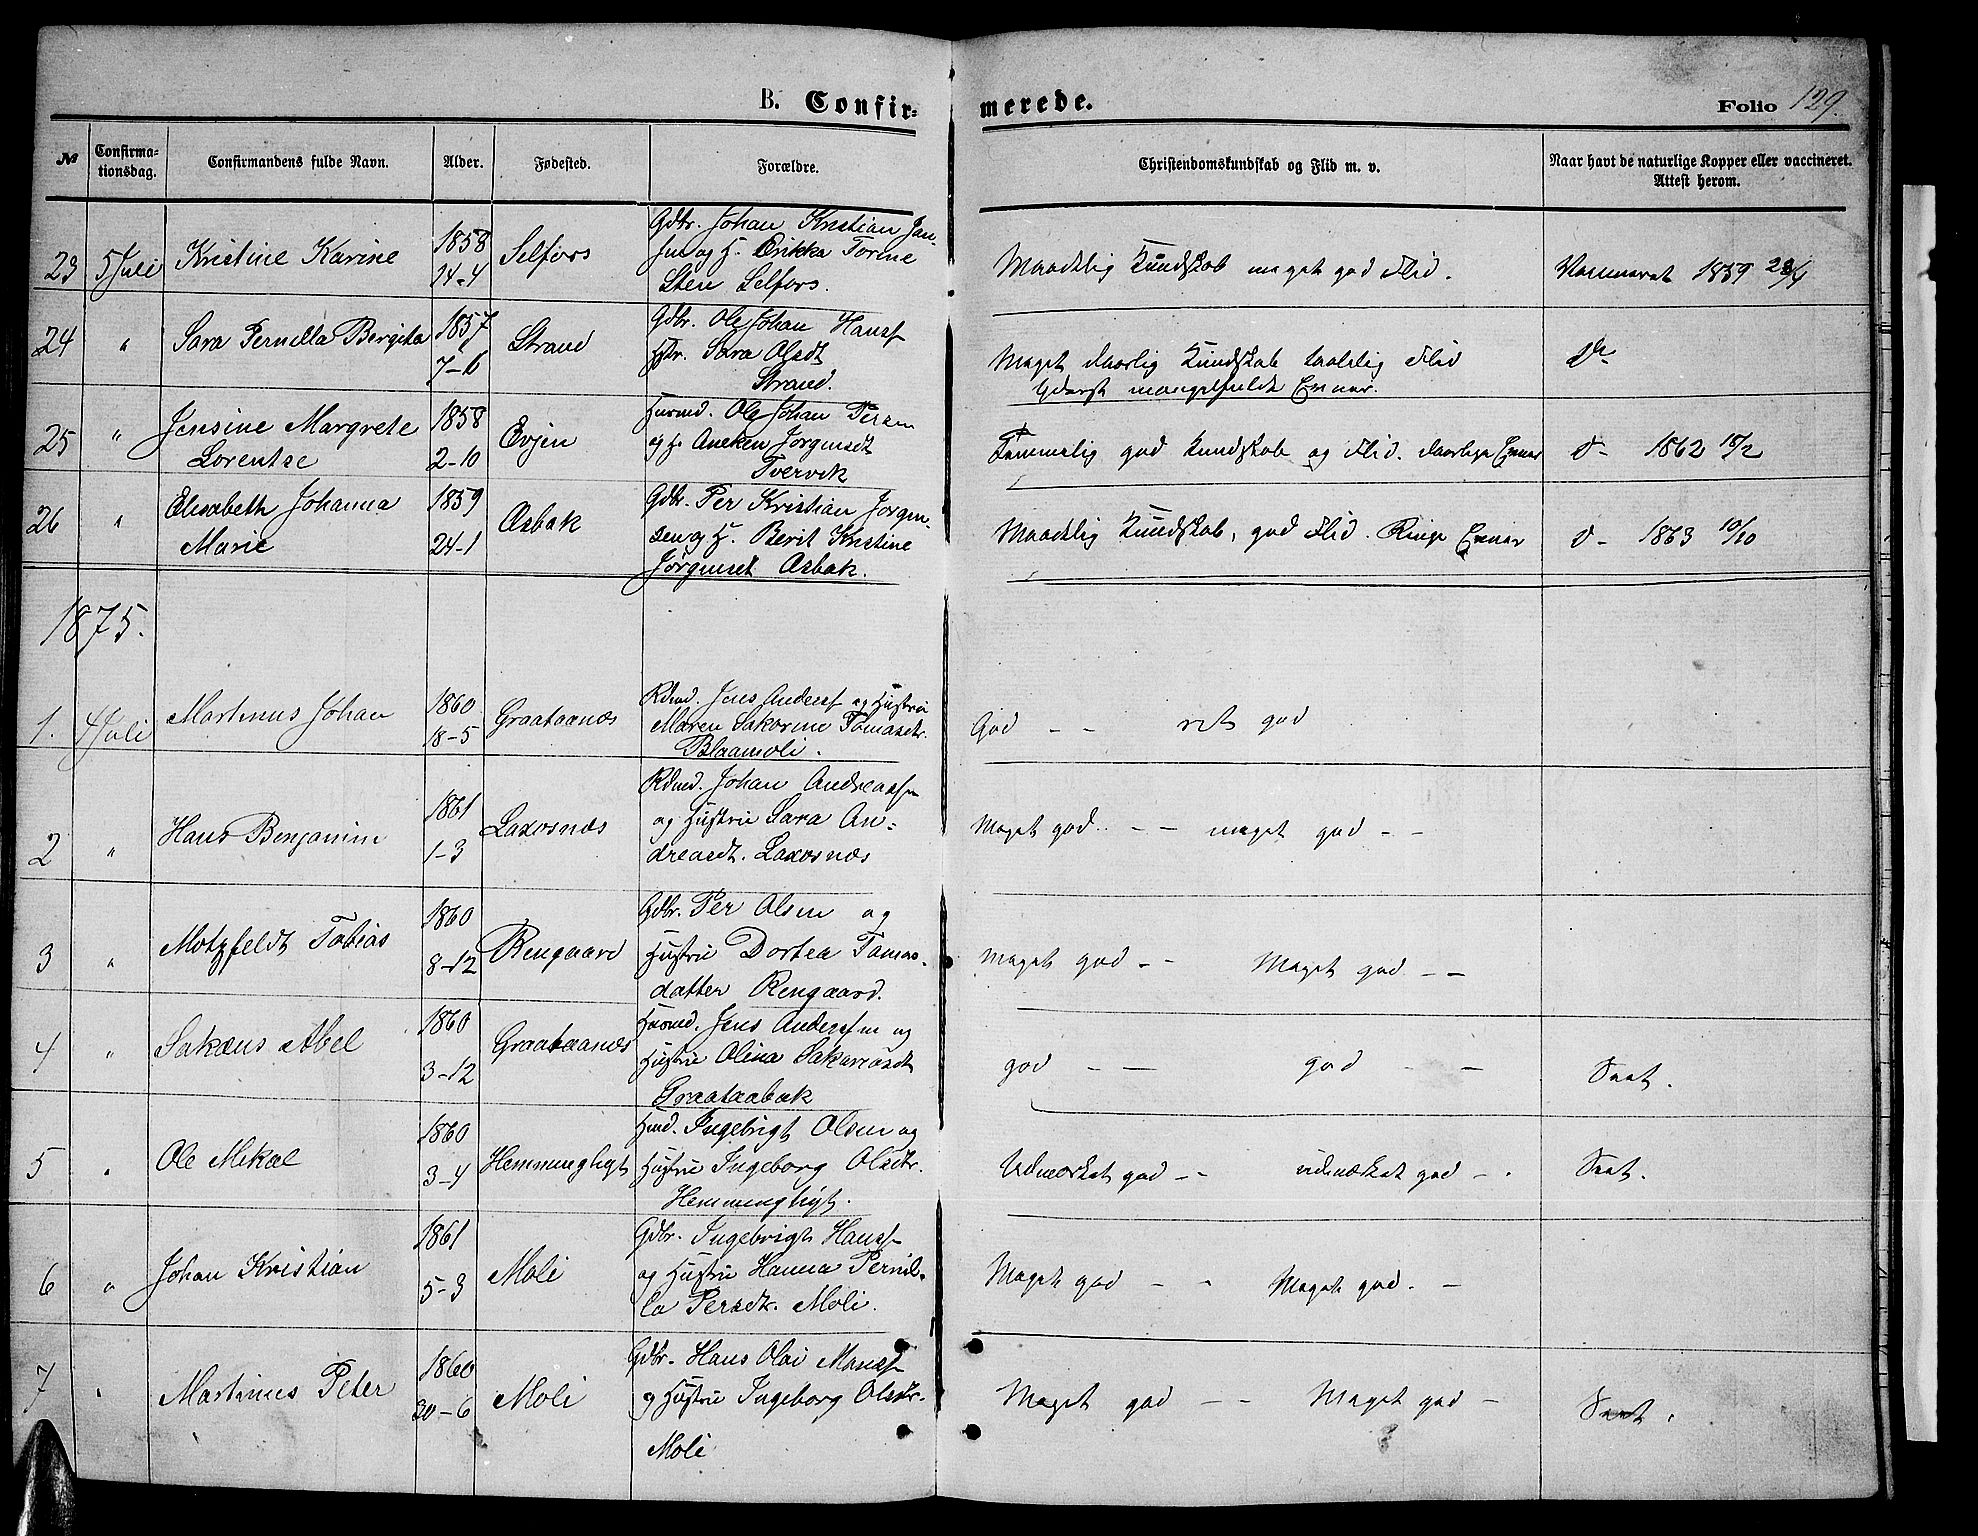 B. Confir=
merede.
Folio 129.
№
Confirma-
tionsdag.
Confirmandens fulde Navn.
Alder.
Fødested.
Forældre.
Christendomskundskab og Flid m. v.
Naar havt de naturlige Kopper eller vaccineret.
Attest herom.
23 5 Juli Kristine Karine 1858 14-4 Selfors
Gdbr. Johan Kristian Jan-
sen og H. Erikka Torine
Sten Selfors.
Maadelig Kundskab meget god Flid.
1859
24 " Sara Pernilla Bergitta 1857 7-6 Strand
Gdbr. Ole Johan Hanss.
Hstr. Sara Olsdt
Strand.
Meget daarlig Kundskab taalelig Flid
Yderst mangelfulde Evner.
do
25 " Jensine Margrete
Lorentse 1858 2-10 Evjen
Husmd. Ole Johan Persen
og H. Aneken Jørgensdt
Tvervik
Temmelig god Kundskab og Flid. daarlige Evner
d- 1862
26 " Elisabeth Johanna
Marie 1859 24-1 Asbak
Gdbr. Per Kristian Jørgen-
sen og H. Berit Kristine
Jørgensdt Asbak.
Maadelig Kundskab, god Flid. Ringe Evner
d- 1863 10/10
1875.
1. 4 Juli Martinus Johan 1860 18-5 Graataanæs
Rdmd. Jens Anderss. og Hustru
Maren Sakarine Tomasdtr.
Blaamoli.
God - - ret god
2 " Hans Benjamin 1861 1-3 Laxosnæs
Rdmd. Johan Andreassen
og Hustru Sara An-
dreasdt. Laxosnæs
Meget god - - meget god - -
3 " Motzfeldt Tobias 1860 8-12 Rengaard
Gdbr. Per Olsen og
Hustru Dortea Tomas-
datter Rengaard.
Meget god - - Meget god - -
4 " Sakæus Abel 1860 3-12 Graataanæs
Husmd. Jens Anderssen og
Hustru Olina Sakariasdt
Graataabak
god - - god - - Seet.
5 " Ole Mikal 1860 3-4 Hemminghyt
Hmd. Ingebrigt Olsen og
Hustru Ingeborg Olsdtr.
Hemminghyt.
Udmærket god - - udmærket god - - Seet.
6 " Johan Kristian 1861 5-3 Moli
Gdbr. Ingebrigt Hanss.
og Hustru Hanna Pernil-
la Persdt. Moli.
Meget god - - Meget god. -
7 " Martinus Peter 1860 30-6 Moli
Gdbr. Hans Olai Hanss.
og Hustru Ingeborg Olsdtr.
Moli
Meget god - - Meget god - Seet.